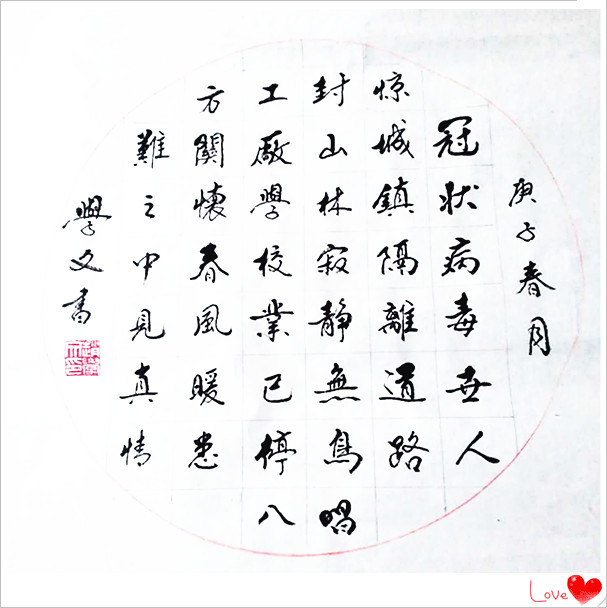 庚子春月
冠状病毒世人
惊城鎮隔離道路
封山林寂静無鳥唱
工厰學校業已停八
方關懷春風暖患
難之中見真情
學文書
Love